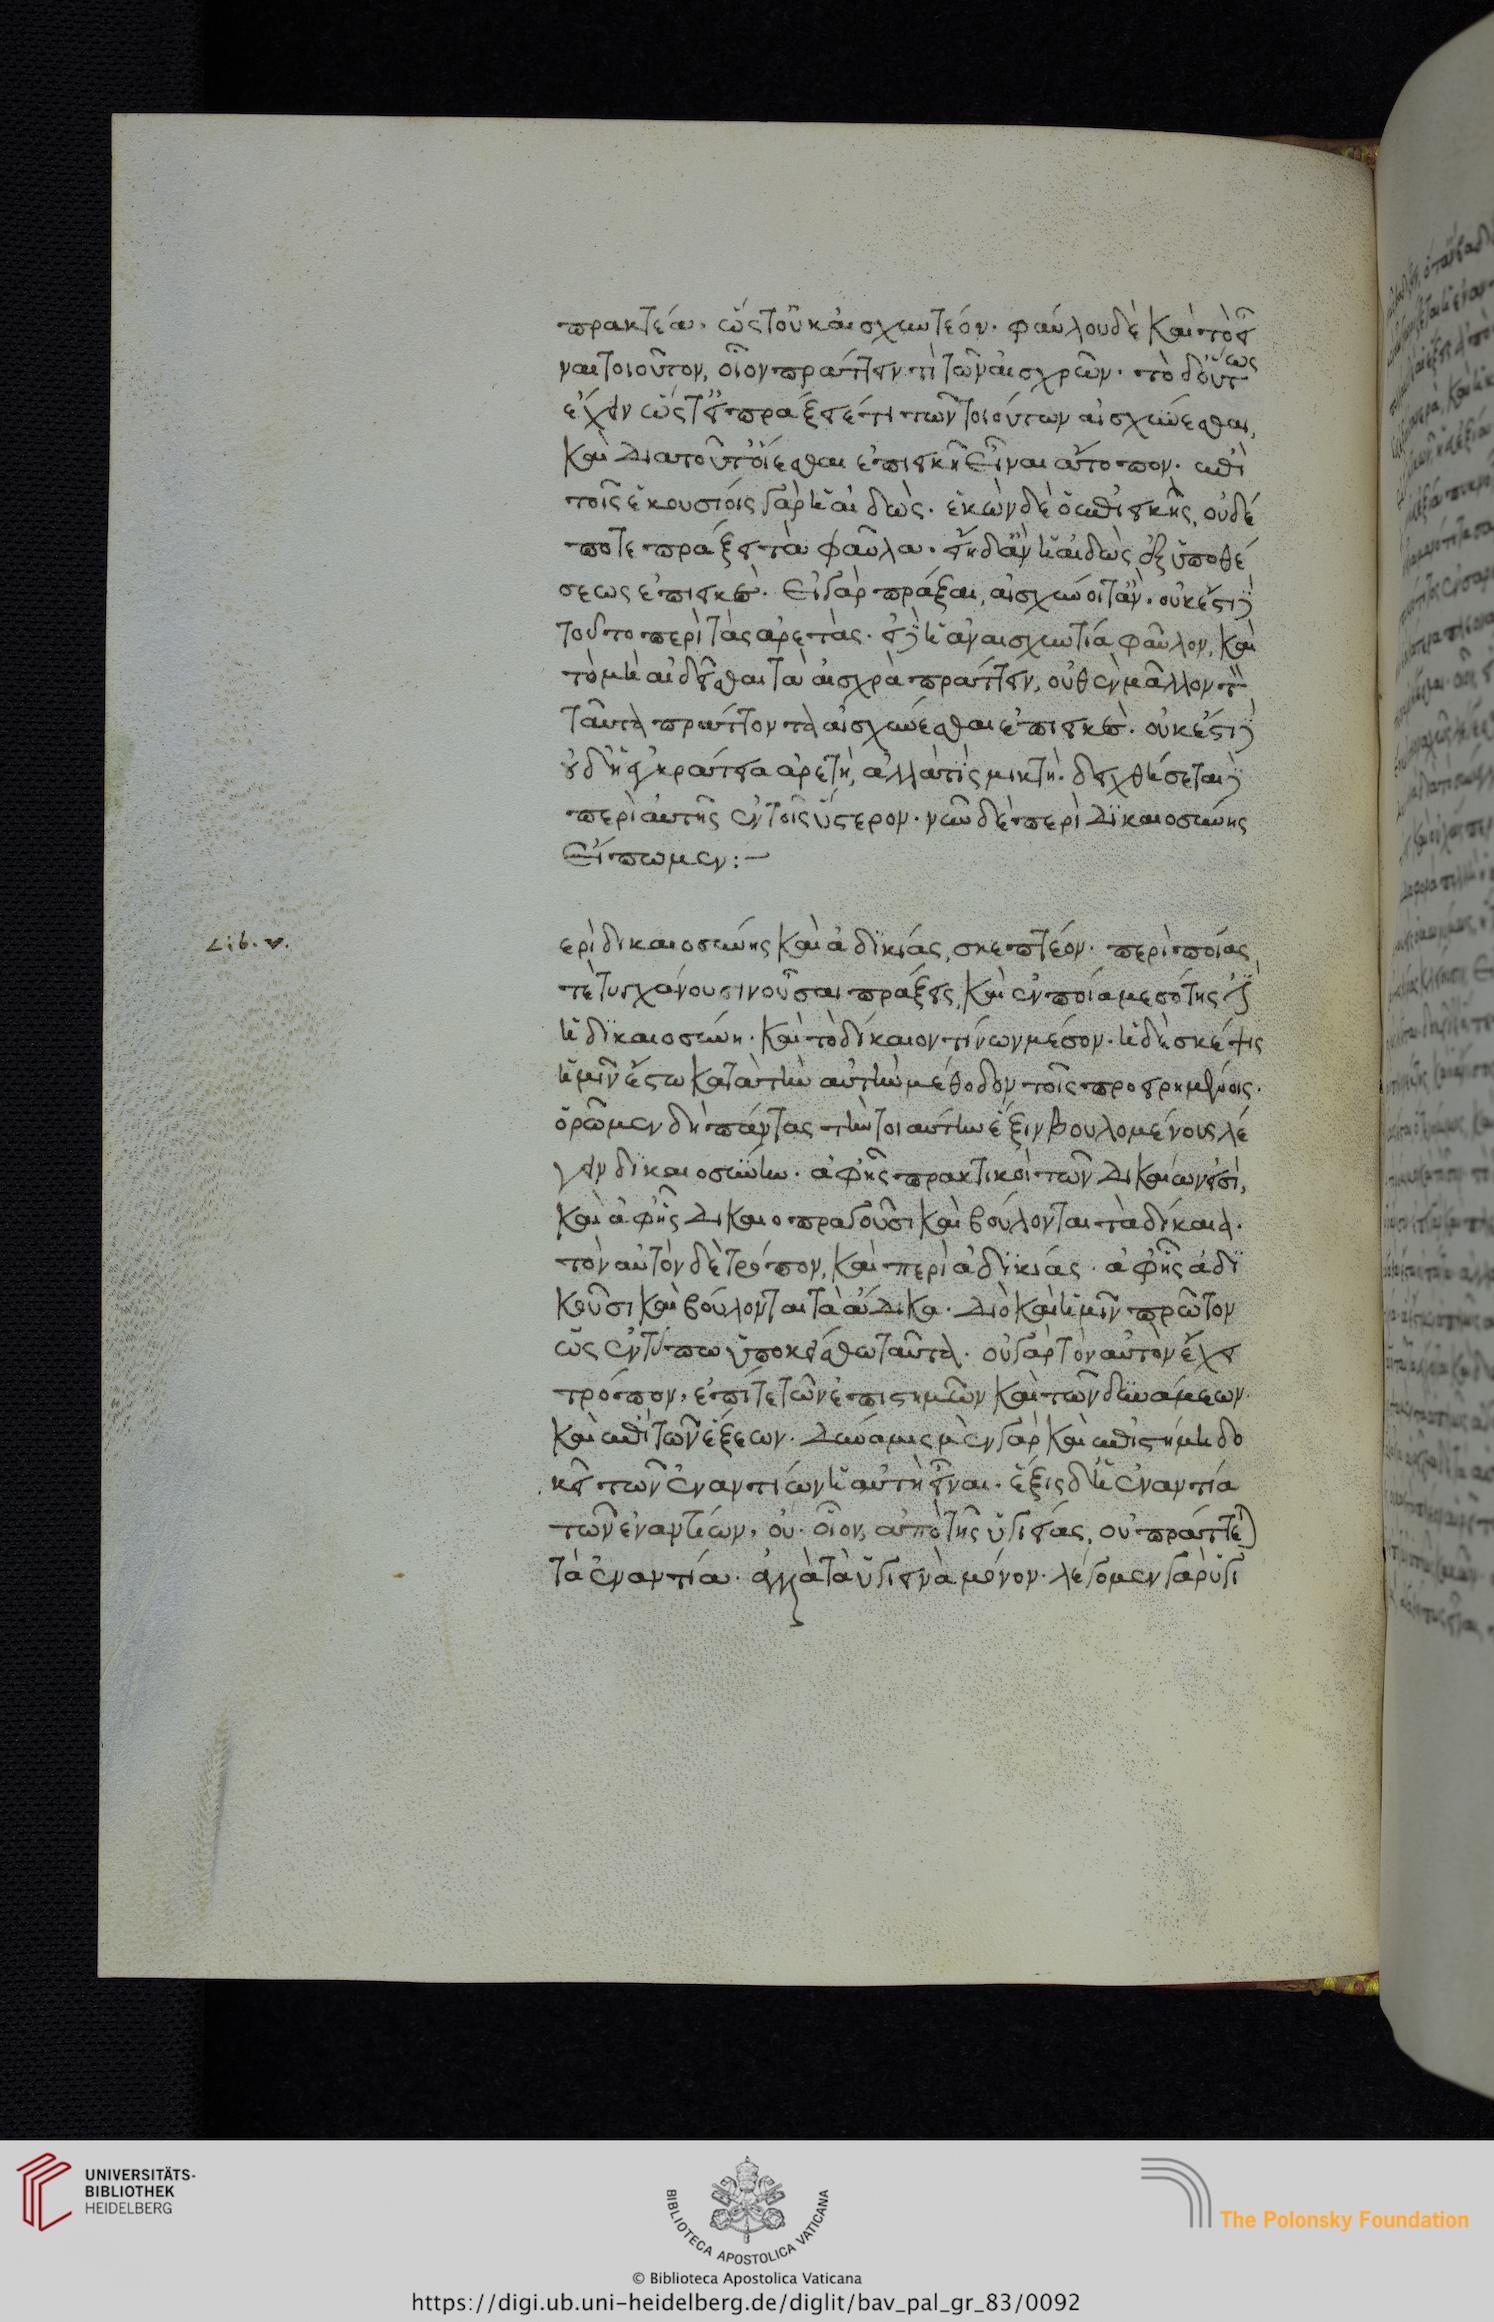 πρακτέα. ὥστ' οὐκ αἰσχυντέον. φαύλου δὲ καὶ τὸ εἶ
ναι τοιοῦτον, οἷον πράττειν τὶ τῶν αἰσχρῶν. τὸ δ' οὕτως
ἔχειν ὥστ' εἰ πράξειέ τι τῶν τοιούτων αἰσχύνεσθαι,
καὶ διὰ τοῦτ' οἴεσθαι ἐπιεικῆ εἶναι ἄτοπον. ἐπὶ
τοῖς ἑκουσίοις γὰρ ἡ αἰδώς. ἑκὼν δὲ ὁ ἐπιεικὴς, οὐδέ
ποτε πράξει τὰ φαῦλα. εἴη δ' ἂν ἡ αἰδὼς ἐξ ὑποθέ
σεως ἐπιεικές. εἰ γὰρ πράξαι, αἰσχύνοιτ' ἄν. οὐκ ἔστι δὲ
τοῦτο περὶ τὰς ἀρετάς. εἰ δ' ἡ ἀναισχυντία φαῦλον, καὶ
τὸ μὴ αἰδεῖσθαι τὰ αἰσχρὰ πράττειν, οὐθὲν μᾶλλον τὸν
ταῦτα πράττοντα αἰσχύνεσθαι ἐπιεικές. οὐκ ἔστι δὲ
οὐδ' ἡ ἐγκράτεια ἀρετὴ, ἀλλά τις μικτή. δειχθήσεται δὲ
περὶ αὐτῆς ἐν τοῖς ὕστερον. νῦν δὲ περὶ δικαιοσύνης
εἴπωμεν:—
Lib. v.
ερὶ δικαιοσύνης καὶ ἀδικίας, σκεπτέον. περὶ ποίας
τὲ τυγχάνουσιν οὖσαι πράξεις, καὶ ἐν ποία μεσότης ἐστὶν
ἡ δικαιοσύνη. καὶ τὸ δίκαιον τίνων μέσον. ἡ δὲ σκέψις
ἡμῖν ἔστω κατὰ τὴν αὐτὴν μέθοδον τοῖς προειρημένοις.
ὁρῶμεν δὴ πάντας τὴν τοιαύτην ἕξιν βουλομένους λέ
γειν δικαιοσύνην. ἀφ' ἧς πρακτικοὶ τῶν δικαίων εἰσὶ,
καὶ ἀφ' ἧς δικαιοπραγοῦσι καὶ βούλονται τὰ δίκαια.
τὸν αὐτὸν δὲ τρόπον, καὶ περὶ ἀδικίας. ἀφ' ἧς ἀδι
κοῦσι καὶ βούλονται τὰ ἄδικα. διὸ καὶ ἡμῖν πρῶτον
ὡς ἐν τύπω ὑποκείσθω ταῦτα. οὐ γὰρ τὸν αὐτὸν ἔχει
τρόπον, ἐπί τε τῶν ἐπιστημῶν καὶ τῶν δυνάμεων.
καὶ ἐπὶ τῶν ἕξεων. δύναμις μὲν γὰρ καὶ ἐπιστήμη δο
κεῖ τῶν ἐναντίων ἡ αὐτὴ εἶναι. ἕξις δ' ἡ ἐναντία
τῶν ἐναντίων, οὐ. οἷον, ἀπὸ τῆς ὑγιείας, οὐ πράττεται
τὰ ἐναντία. ἀλλὰ τὰ ὑγιεινὰ μόνον. λέγομεν γὰρ ὑγι
UNIVERSITÄTS-
BIBLIOTHEK
HEIDELBERG
BIBLIOTECA APOSTOLICA VATICANA
The Polonsky Foundation
© Biblioteca Apostolica Vaticana
https://digi.ub.uni-heidelberg.de/diglit/bav_pal_gr_83/0092